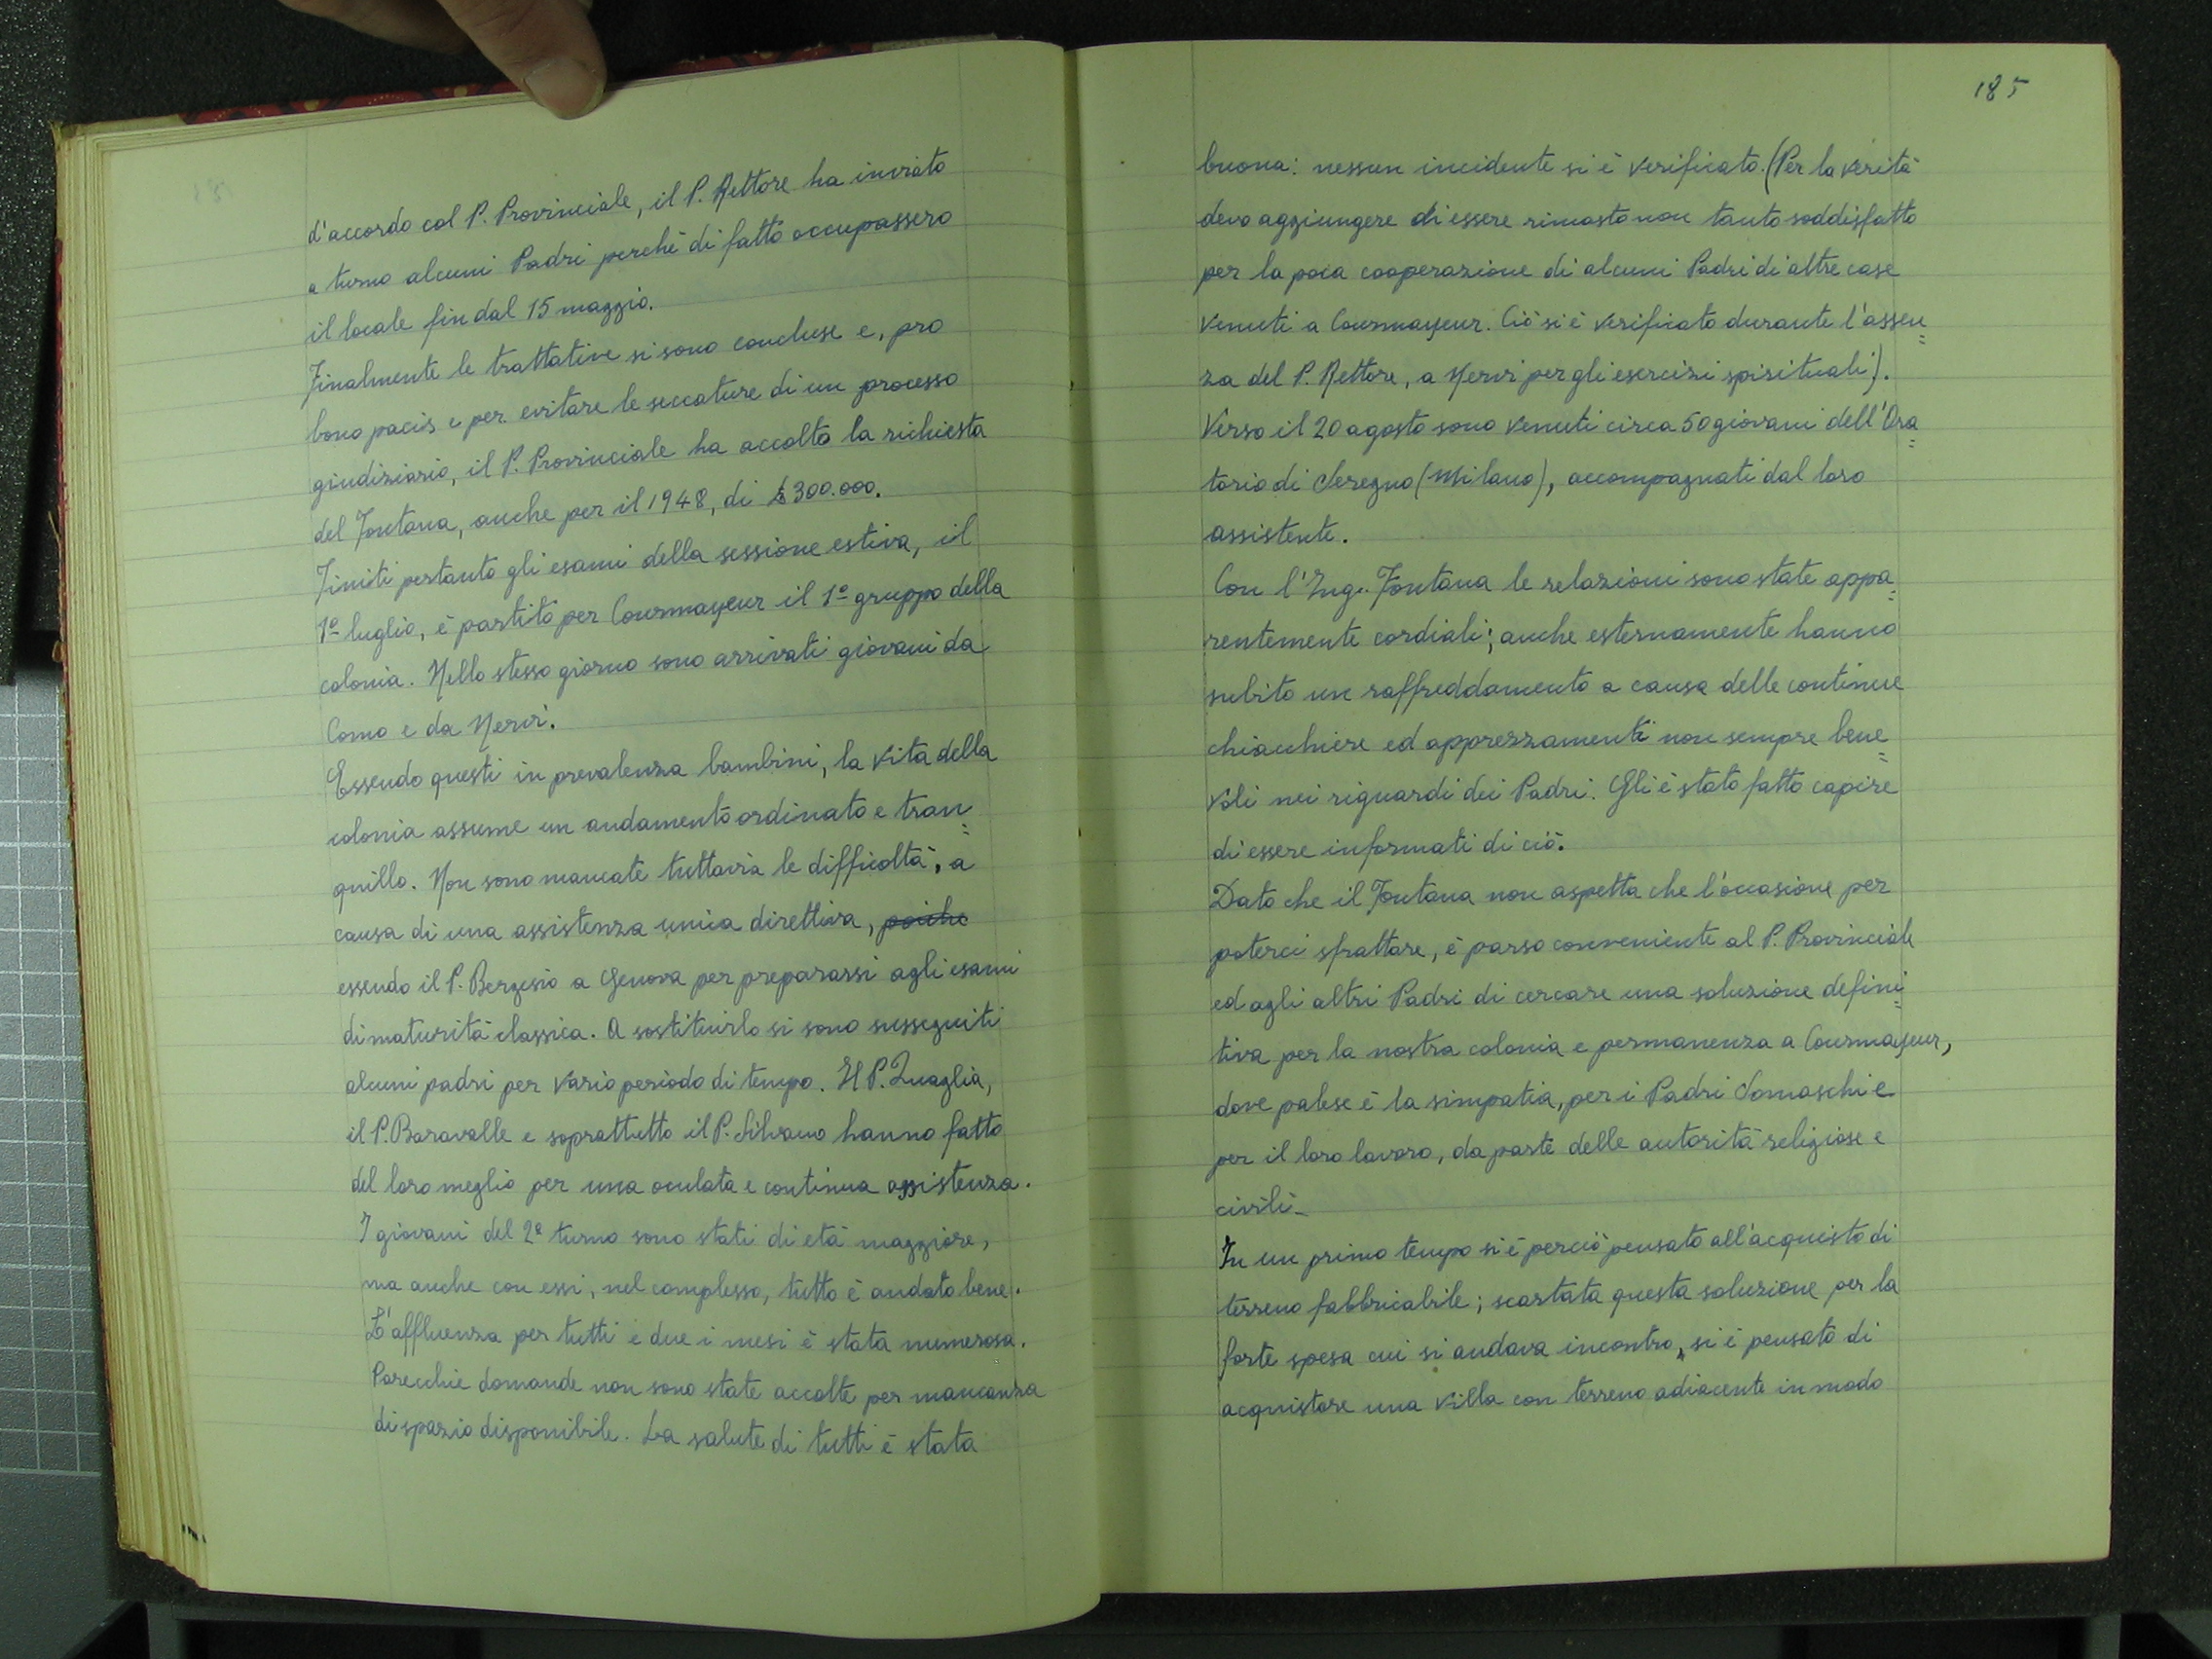 d'accordo col P. Provinciale, il P. Rettore ha inviato
a turno alcuni Padri perchè di fatto occupassero
il locale fin dal 15 maggio.
Finalmente le trattative si sono concluse e, pro
bono pacis e per evitare le seccature di un processo
giudiziario, il P. Provinciale ha accolto la richiesta
del Fontana, anche per il 1948, di £ 300.000.
Finiti pertanto gli esami della sessione estiva, il
1º luglio, è partito per Courmayeur il 1º gruppo della
colonia. Nello stesso giorno sono arrivati giovani da
Como e da Nervi.
Essendo questi in prevalenza bambini, la vita della
colonia assume un andamento ordinato e tran=
quillo. Non sono mancate tuttavia le difficoltà, a
causa di una assistenza unica direttiva, poichè
essendo il P. Bergesio a Genova per prepararsi agli esami
di maturità classica. A sostituirlo si sono susseguiti
alcuni padri per vario periodo di tempo. Il P. Quaglia,
il P. Baravalle e soprattutto il P. Silvano hanno fatto
del loro meglio per una oculata e continua assistenza.
I giovani del 2º turno sono stati di età maggiore,
ma anche con essi, nel complesso, tutto è andato bene.
L'affluenza per tutti e due i mesi è stata numerosa.
Parecchie domande non sono state accolte per mancanza
di spazio disponibile. La salute di tutti è stata
185
buona: nessun incidente si è verificato. (Per la verità
devo aggiungere di essere rimasto non tanto soddisfatto
per la poca cooperazione di alcuni Padri di altre case
venuti a Courmayeur. Ciò si è verificato durante l'assen=
za del P. Rettore, a Nervi per gli esercizi spirituali).
Verso il 20 agosto sono venuti circa 50 giovani dell'Ora=
torio di Seregno (Milano), accompagnati dal loro
assistente.
Con l'Ing. Fontana le relazioni sono state appa=
rentemente cordiali; anche esternamente hanno
subito un raffreddamento a causa delle continue
chiacchiere ed apprezzamenti non sempre bene=
voli nei riguardi dei Padri. Gli è stato fatto capire
di essere informati di ciò.
Dato che il Fontana non aspetta che l'occasione per
poterci sfrattare, è parso conveniente al P. Provinciale
ed agli altri Padri di cercare una soluzione defini=
tiva per la nostra colonia e permanenza a Courmayeur,
dove palese è la simpatia, per i Padri Somaschi e
per il loro lavoro, da parte delle autorità religiose e
civili.
In un primo tempo si è perciò pensato all'acquisto di
terreno fabbricabile; scartata questa soluzione per la
forte spesa cui si andava incontro, si è pensato di
acquistare una villa con terreno adiacente in modo